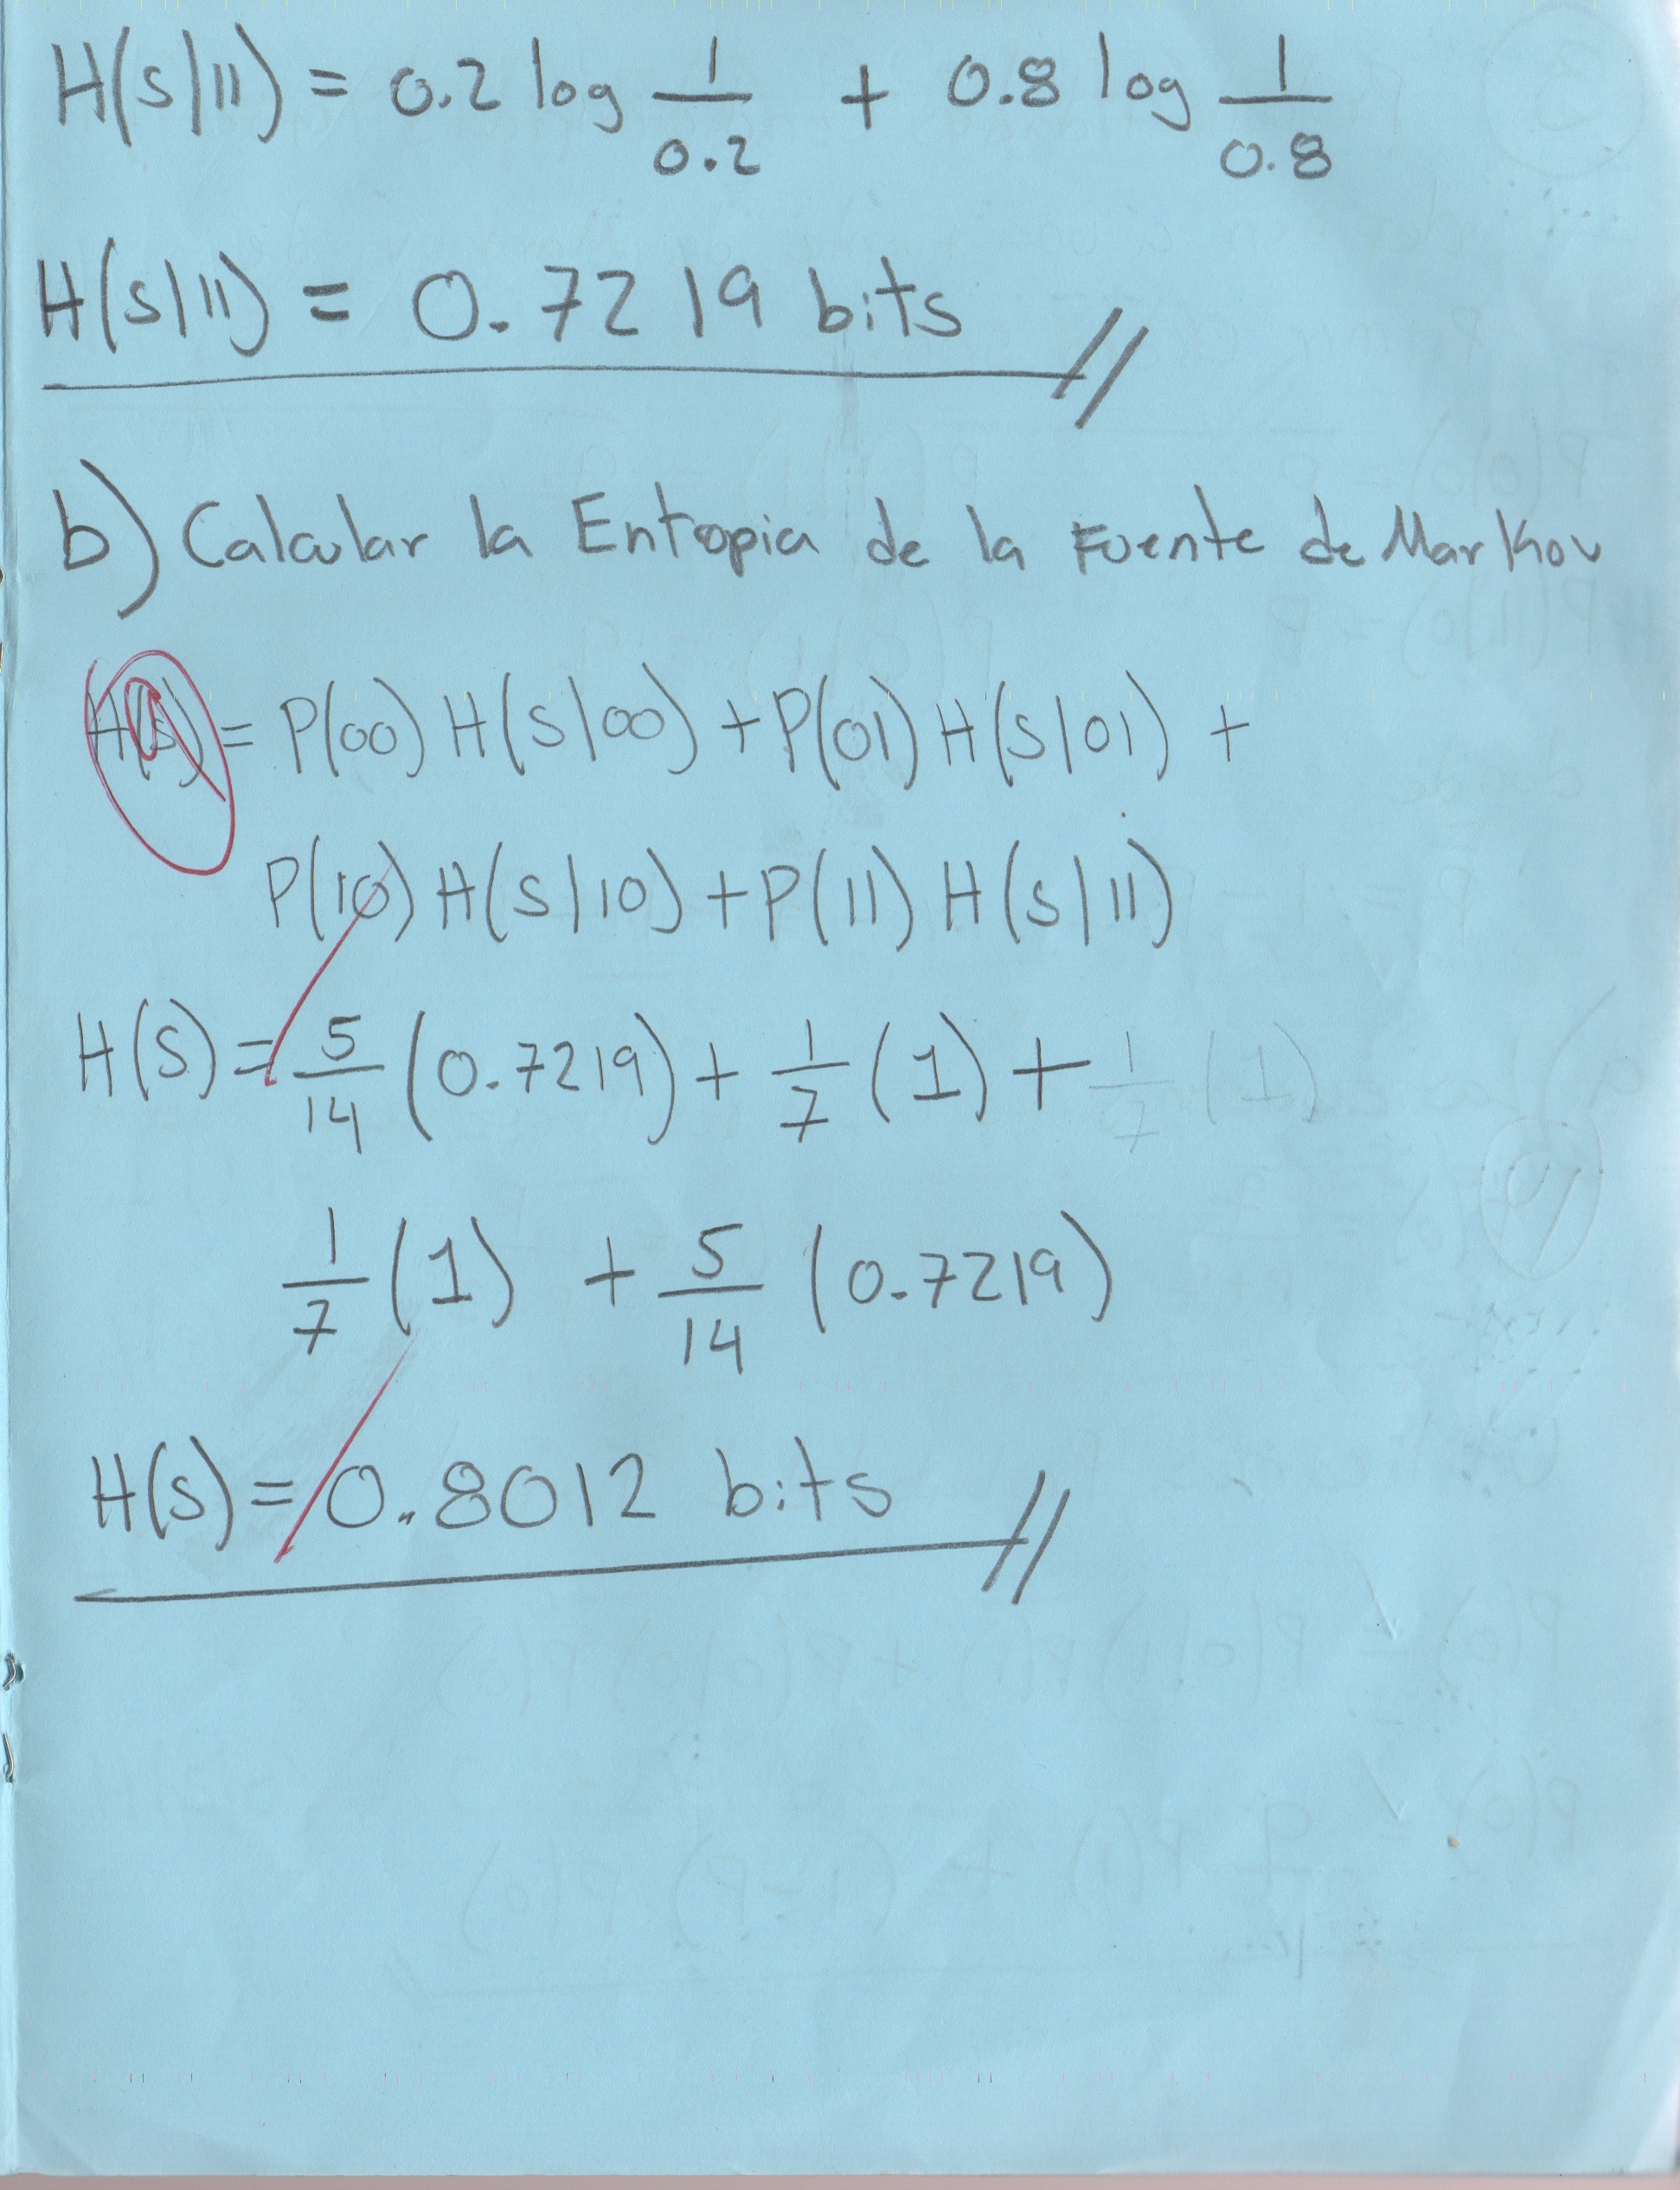 H(s|11) = 0.2 log 1/0.2 + 0.8 log 1/0.8
H(s|11) = 0.7219 bits
b) Calcular la Entropia de la Fuente de Markov
H(s) = P(00) H(s|00) + P(01) H(s|01) +
P(10) H(s|10) + P(11) H(s|11)
H(s) = 5/14 (0.7219) + 1/7 (1) +
1/7 (1) + 5/14 (0.7219)
H(s) = 0.8012 bits